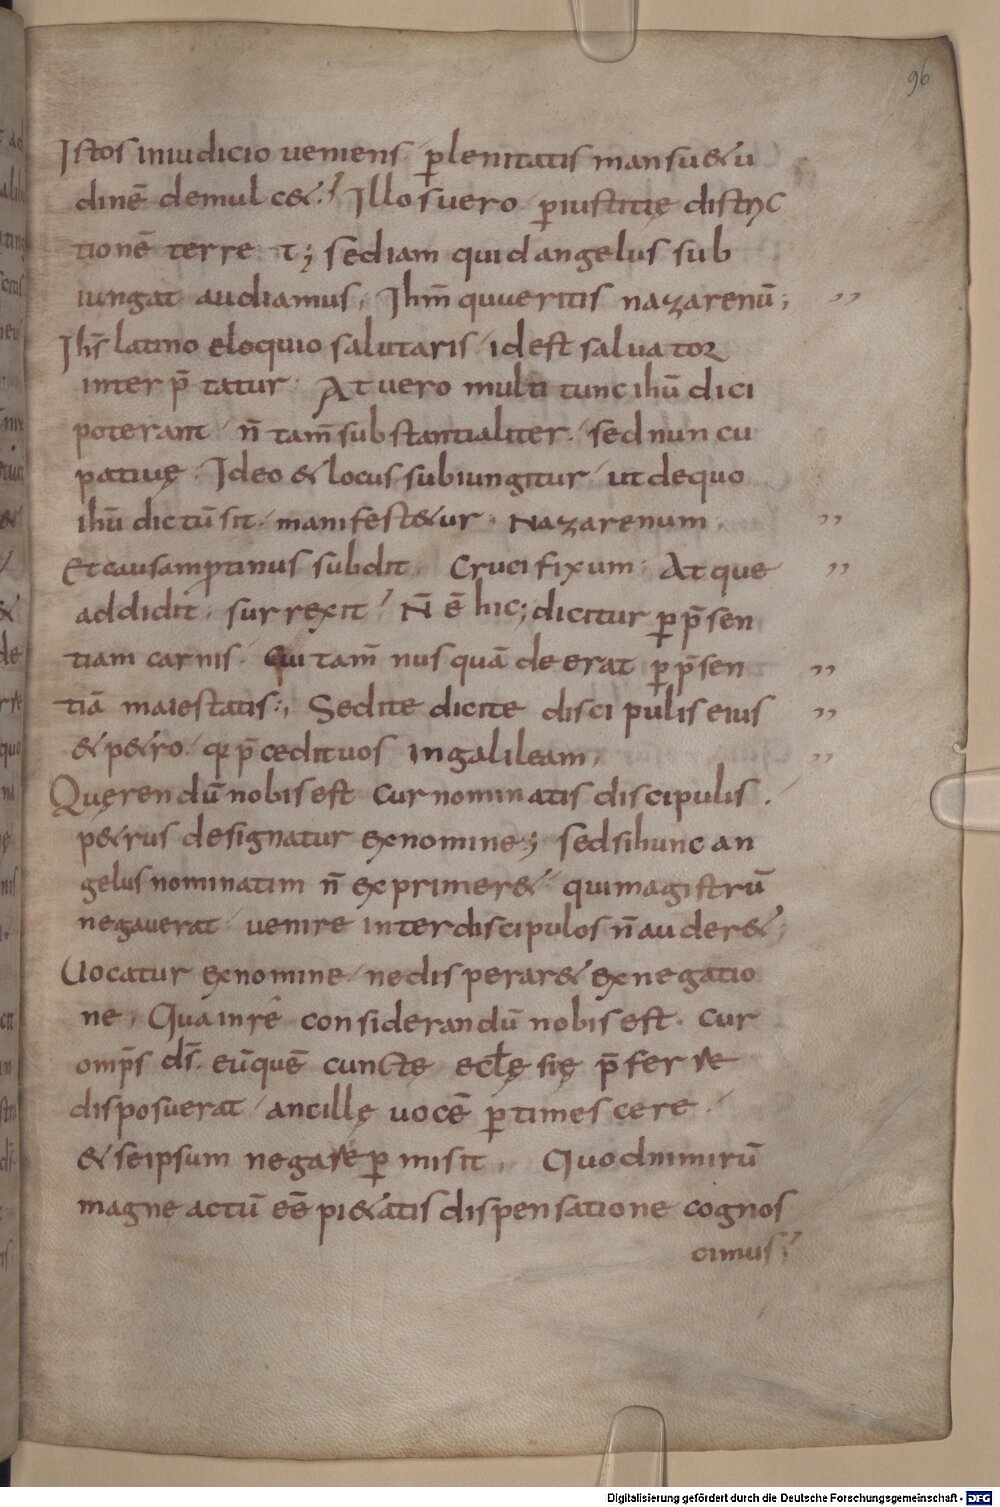 96
Istos in iudicio veniens / p̲lenitatis mansu&u
dinē demulc&.' Illos uero p̲ iustitię distric
tionē terre t; sed iam quid angelus sub
iungat audiamus, Ihm̄ quęritis nazarenū; ,,
Ihs̄ latino eloquio salutaris / idest saluator
inter p̄tatur. At uero multi tunc ihū dici
poterant / n̄ tam̄ substantialiter. sed nuncu
patiuę. Ideo & locus subiungitur / ut de quo
ihū dictū sit. manifest&ur. Nazarenum, ,,
Et causam protinus subdit, Crucifixum. Atque ,,
addidit, surrexit' N̄ ē hic; dicitur p̲ p̄sen
tiam carnis. Qui tam̄ nusquā deerat p̲ p̄sen ,,
tiā maiestatis:, Sed ite dicite discipulis eius ,,
& p&ro / qꝛ p̄cedit uos in galileam, ,,
Quęrendū nobis est cur nominatis discipulis.
p&rus designatur ex nomine; sed si hunc an
gelus nominatim n̄ exprimer& / qui magistrū
negauerat / uenire inter discipulos n̄ auder&;
Uocatur ex nomine / ne disperar& ex negatio
ne, Qua in re considerandū nobis est. cur
omp̄s ds̄. eū quē cunctę eclęsię p̄ferre
disposuerat / ancillę uocē p̲timescere.
& se ipsum negare p̲misit, Quod nimirū
magne actū eē pi&atis dispensatione cognos
cimus;
Digitalisierung gefördert durch die Deutsche Forschungsgemeinschaft - DFG